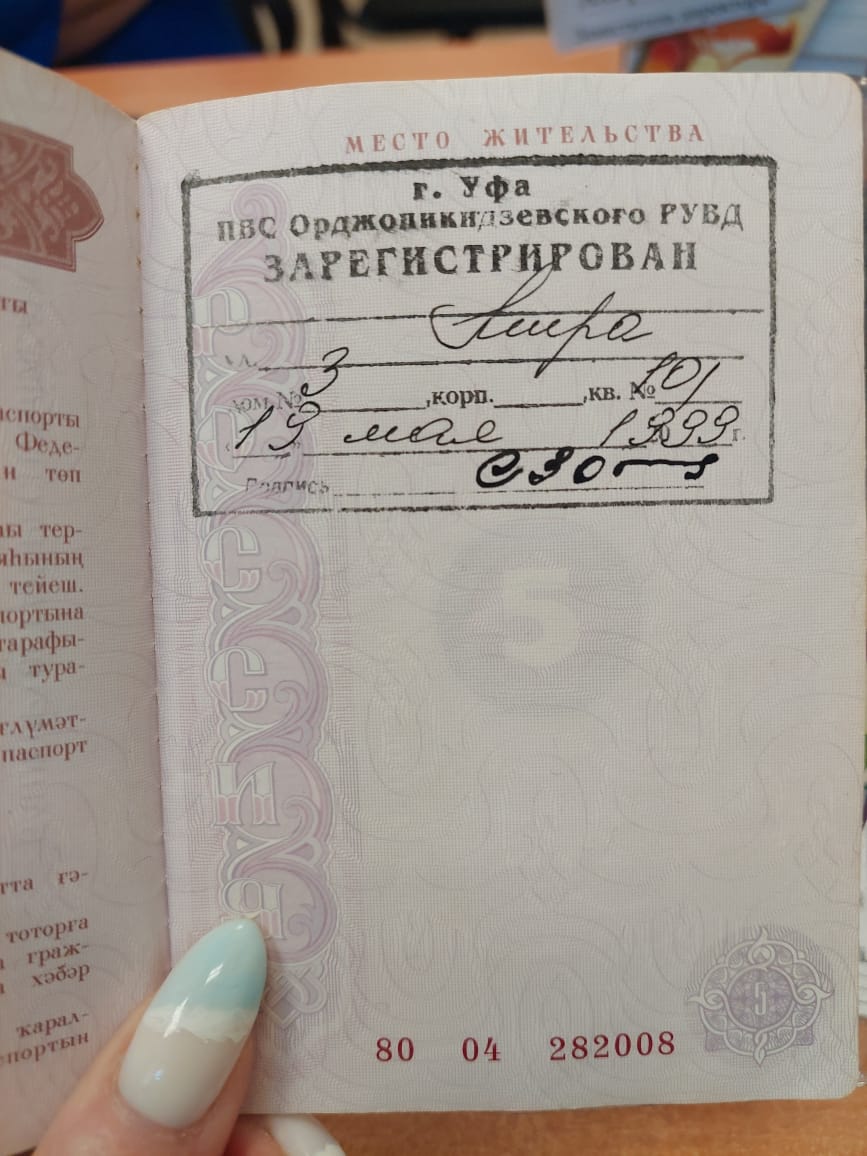 ты
аспорты
Феде-
и төп
ны тер-
яһының
тейеш.
портына
тарафы-
тура-
глүмәт-
паспорт
тта гә-
тоторға
граж-
хәбәр
карал-
спортын
МЕСТО ЖИТЕЛЬСТВА
г. Уфа
ПВС Орджоникидзевского РУВД
ЗАРЕГИСТРИРОВАН
ул. Мира
дом № 3, корп. , кв. № 101
" 19 " мая 1999 г.
Подпись
5
5
80 04 282008